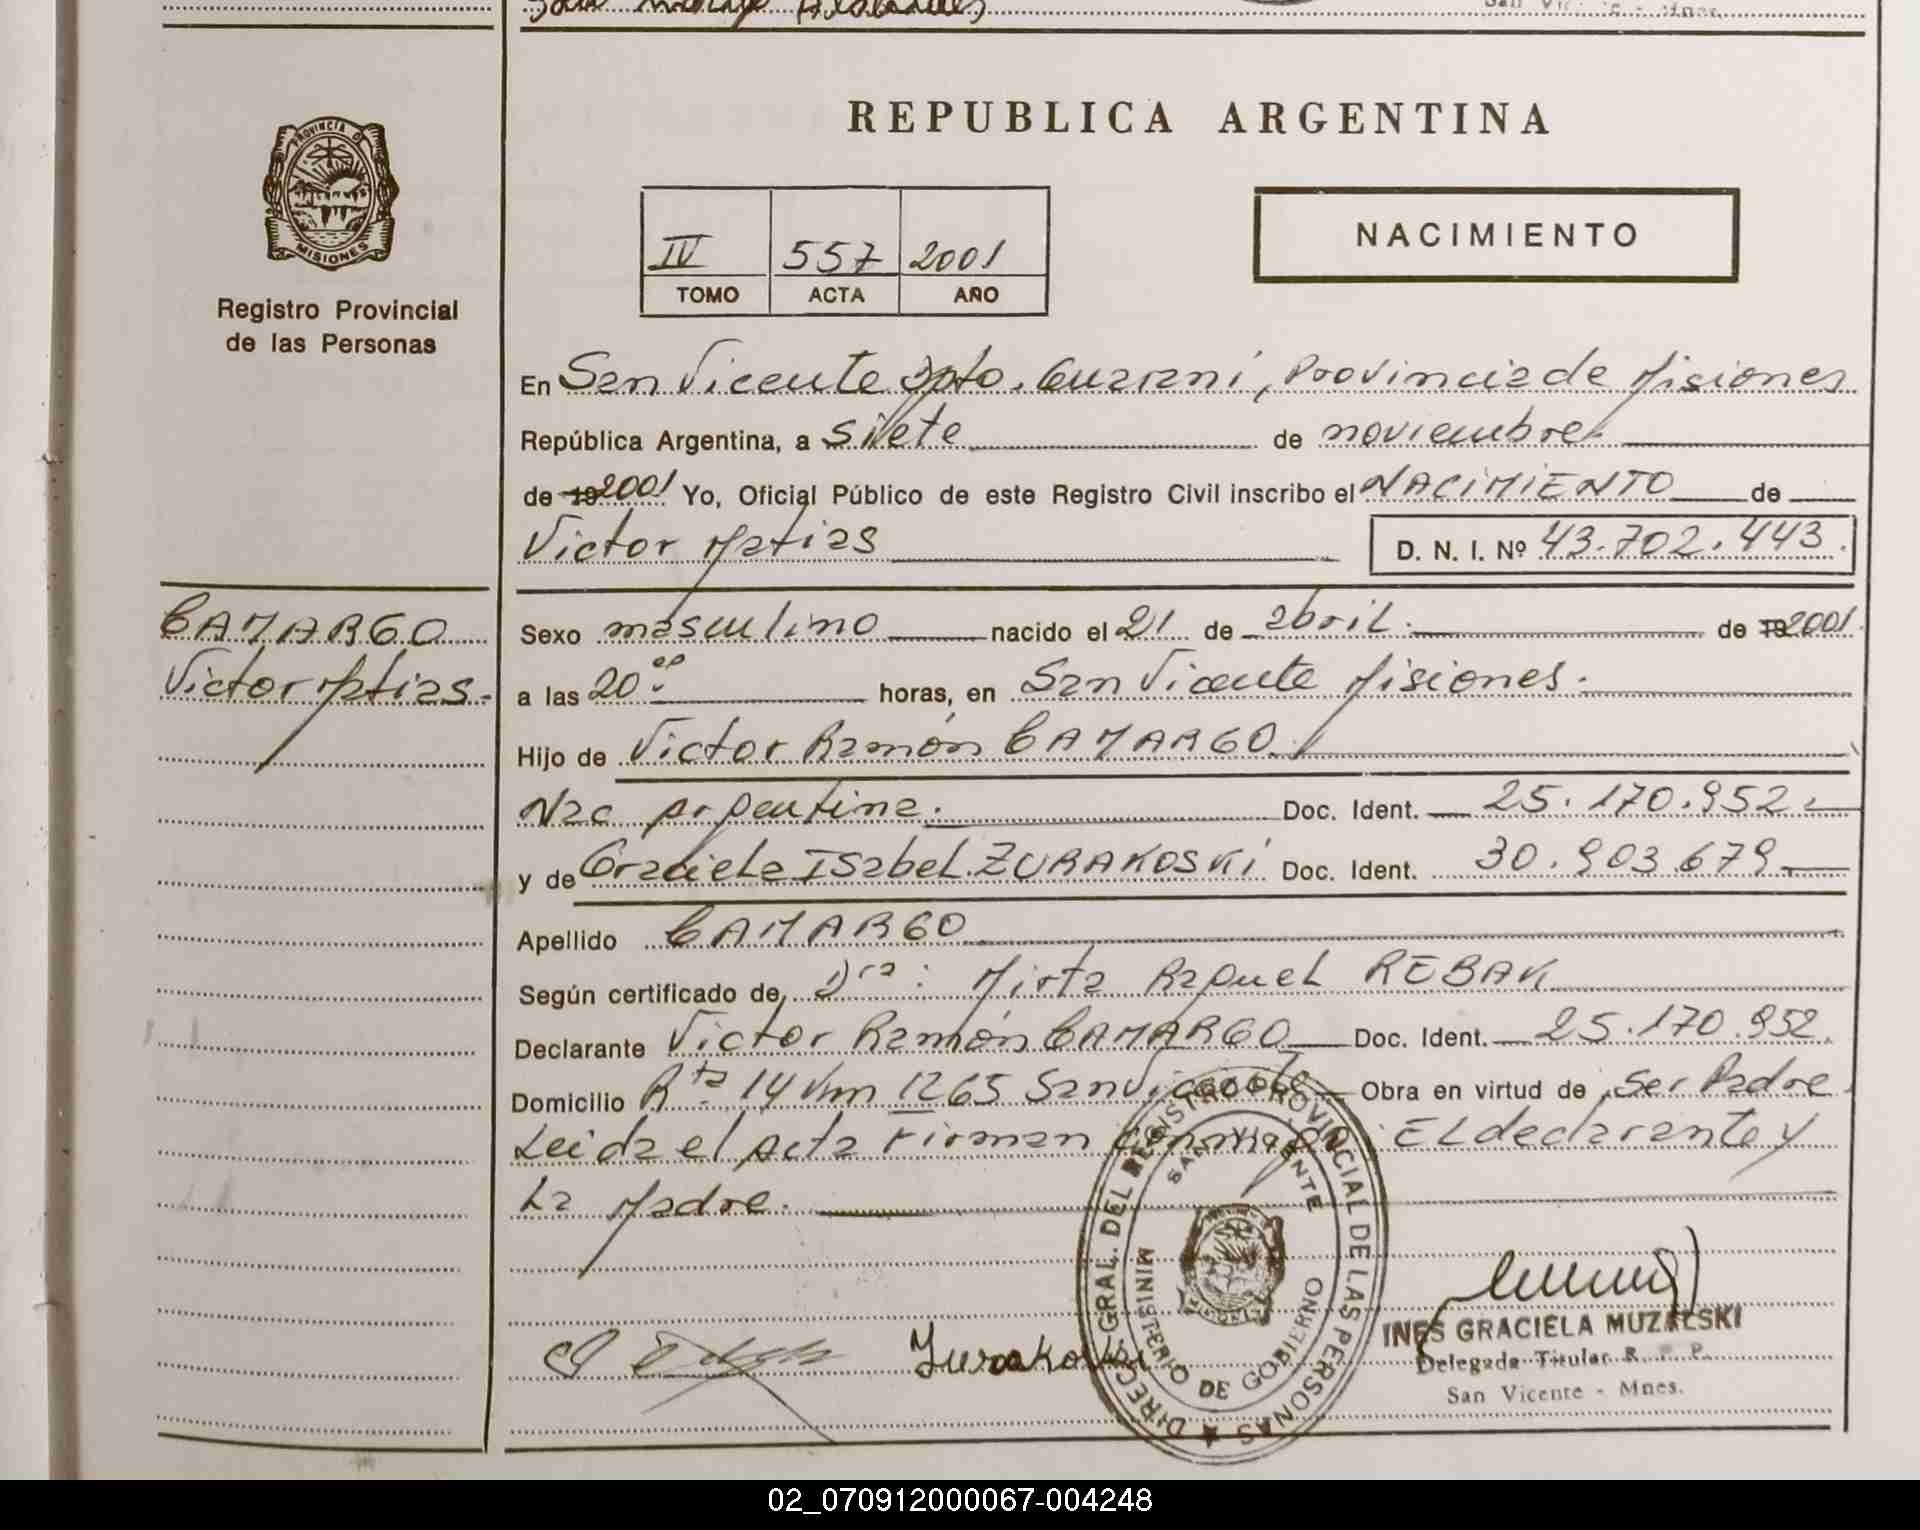 REPUBLICA ARGENTINA
PROVINCIA DE
MISIONES
Registro Provincial
de las Personas
IV 557 2001
TOMO ACTA AÑO
NACIMIENTO
En San Vicente Dpto. Guarani, Provincia de Misiones
República Argentina, a siete de noviembre
de 19 2001 Yo, Oficial Público de este Registro Civil inscribo el NACIMIENTO de
Victor Matias D. N. I. Nº 43.702.443.
CAMARGO
Victor Matias.-
Sexo masculino nacido el 21 de abril. de 19 2001.
a las 20 horas, en San Vicente Misiones.
Hijo de Victor Ramón CAMARGO.
Nac Argentina. Doc. Ident. 25.170.952.
y de Graciela Isabel ZURAKOSKI Doc. Ident. 30.903.679
Apellido CAMARGO
Según certificado de Dra: Mirta Raquel REBAK
Declarante Victor Ramón CAMARGO Doc. Ident. 25.170.952.
Domicilio Rta 14 Km 1265 San Vicente Obra en virtud de ser Padre.
Leida el Acta Firman conmigo: El declarante y
La Madre.
DIRECC. GRAL. DEL REGISTRO PROVINCIAL DE LAS PERSONAS
SAN VICENTE
MINISTERIO DE GOBIERNO
INES GRACIELA MUZALSKI
Delegada Titular R. P. P.
San Vicente - Mnes.
02_070912000067-004248